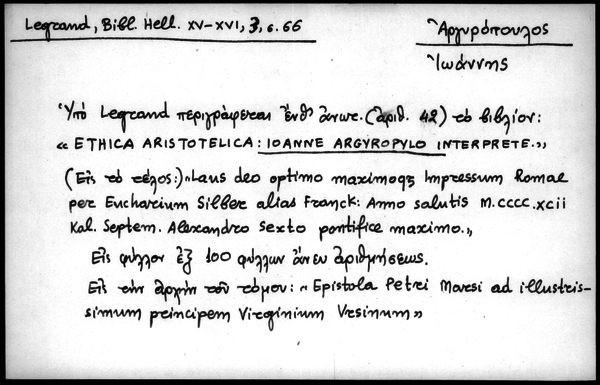 Legrand, Bibl. Hell. XV-XVI, 3, σ. 66
Ἀργυρόπουλος
Ἰωάννης
Ὑπό Legrand περιγράφεται ἔνθ' ἀνωτ. (ἀριθ. 42) τὸ βιβλίον:
« ETHICA ARISTOTELICA: IOANNE ARGYROPYLO INTERPRETE.»
(Εἰς τὸ τέλος:) «Laus deo optimo maximoqz Impressum Romae
per Eucharium Silber alias Franck: Anno salutis M.CCCC.XCii
Kal. Septem. Alexandro Sexto pontifice maximo.»
Εἰς φύλλον ἐξ 100 φύλλων ἄνευ ἀριθμήσεως.
Εἰς τὴν ἀρχὴν τοῦ τόμου: « Epistola Petri Maresi ad illustris-
simum principem Virginium Vrsinum»